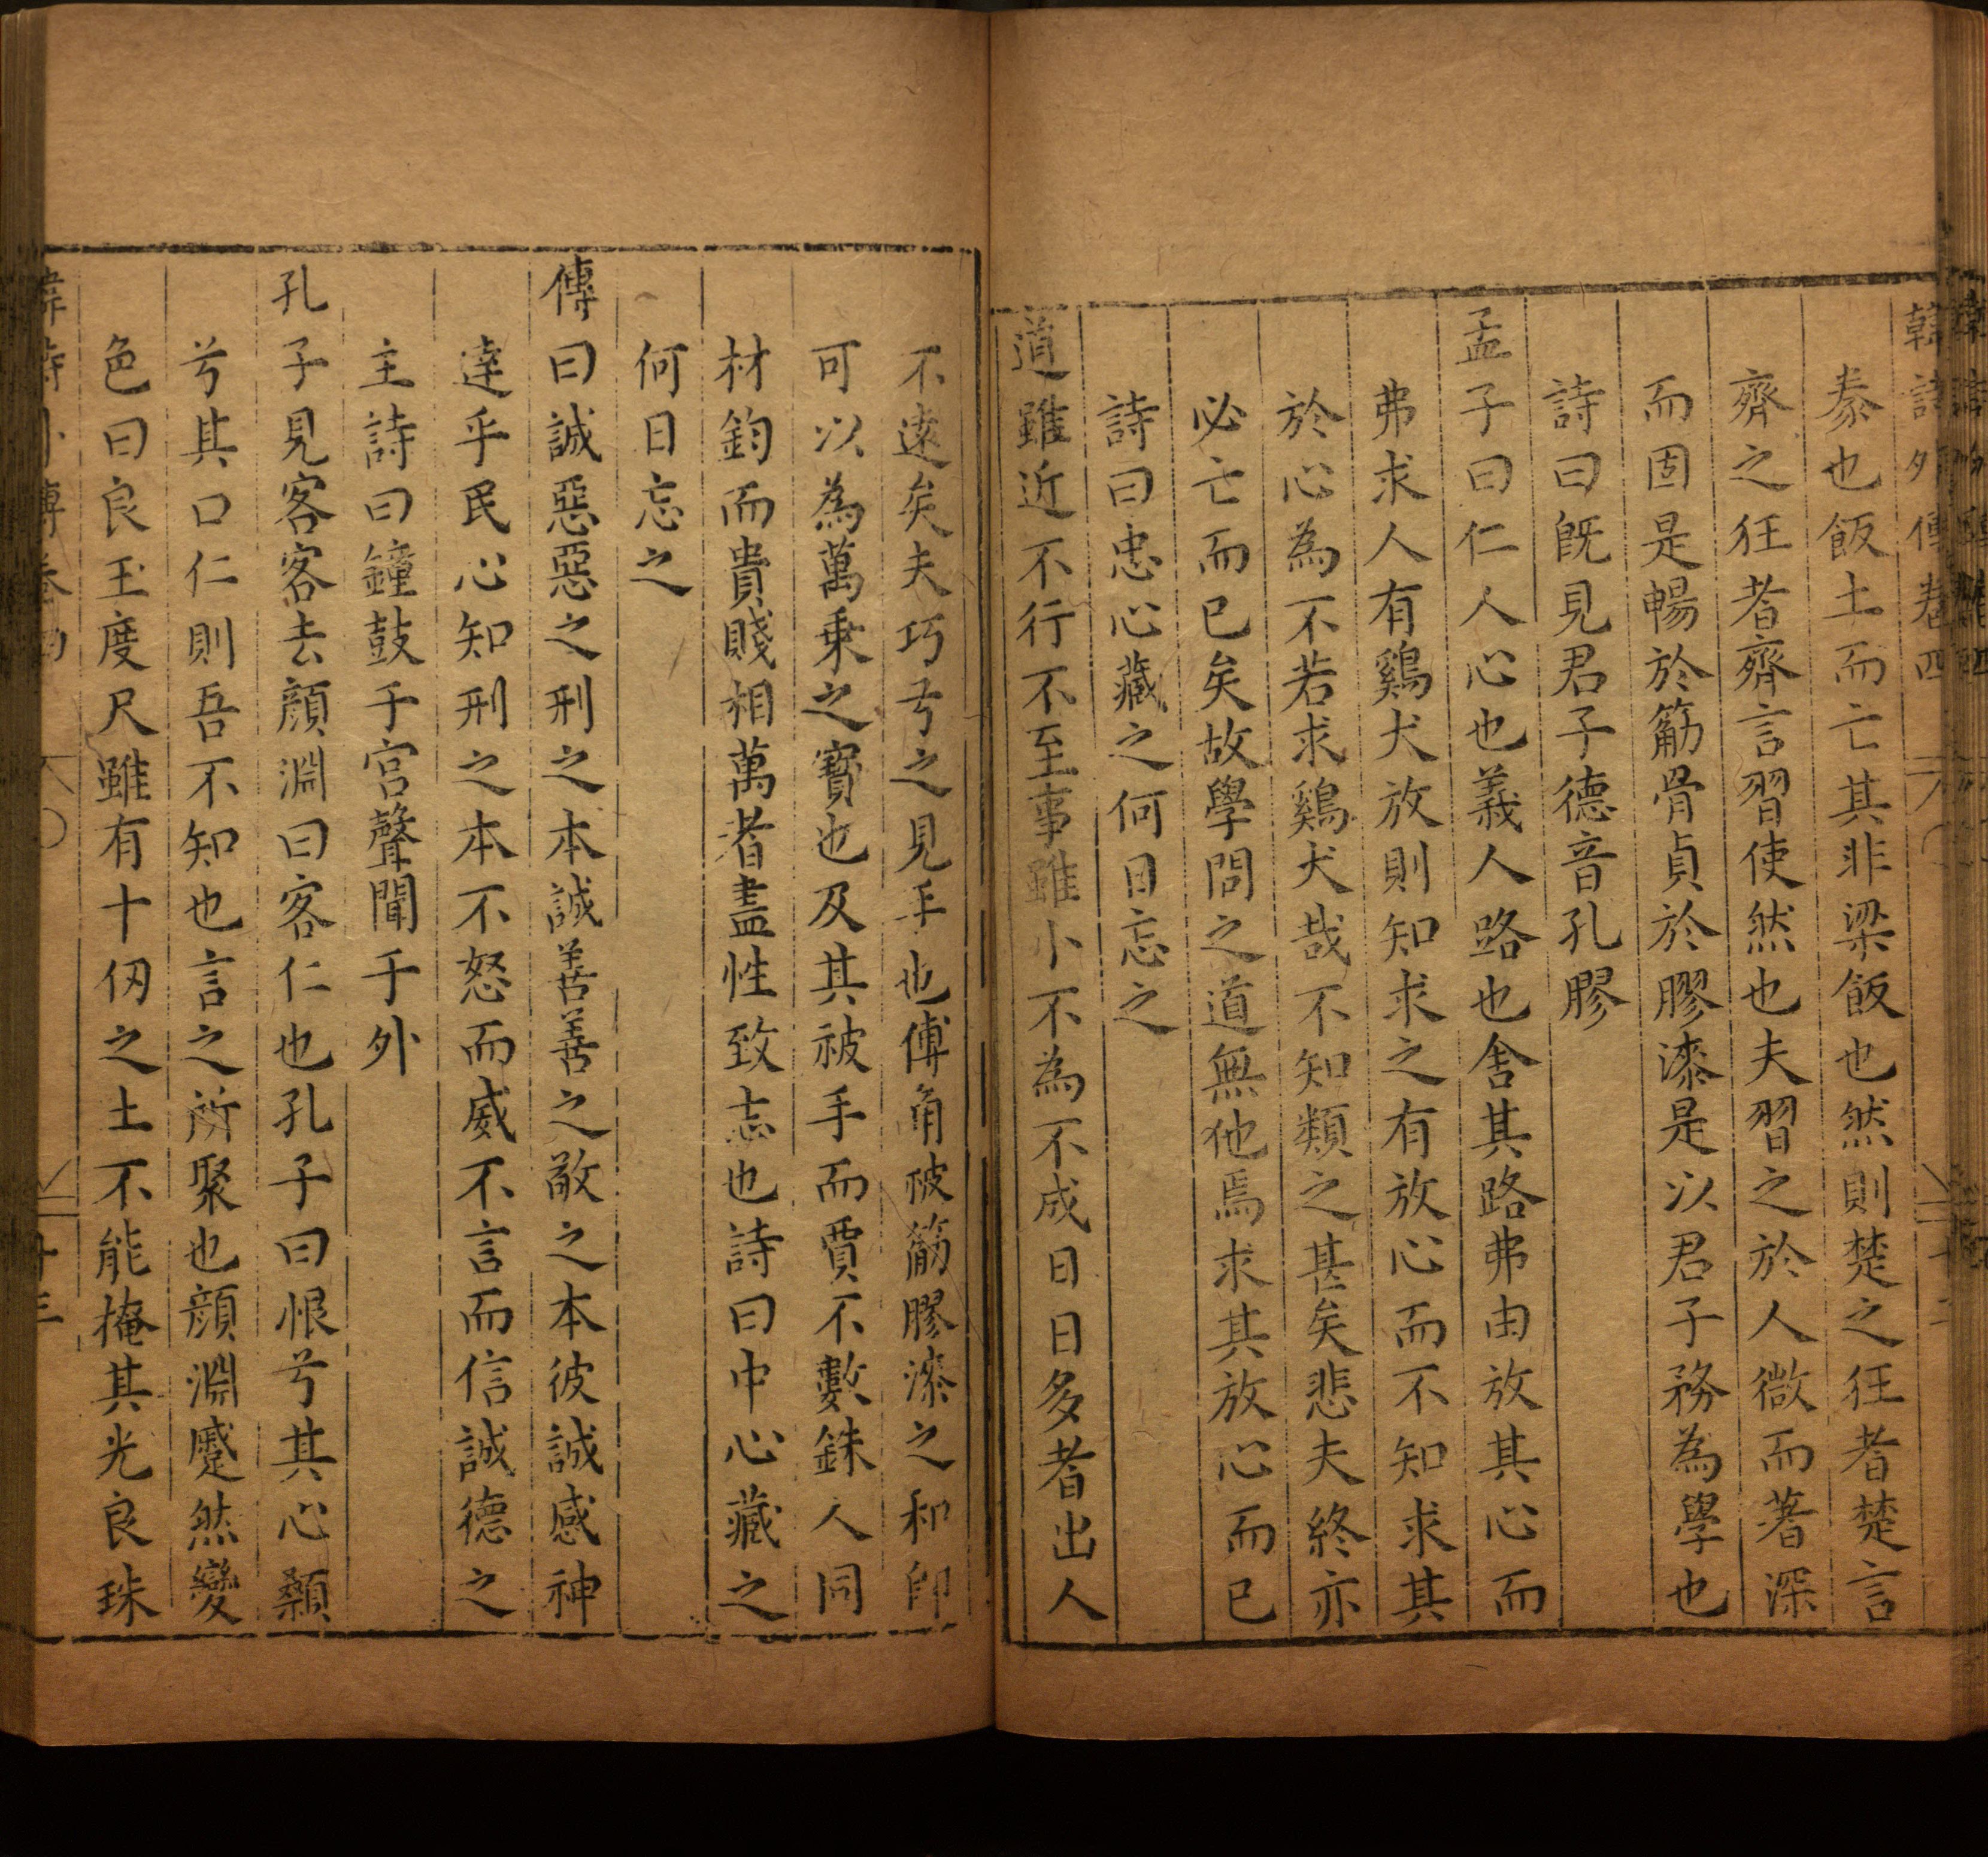 韓詩外傳卷四
泰也飯土而亡其非梁飯也然則楚之狂者楚言
齊之狂者齊言習使然也夫習之於人微而著深
而固是暢於筋骨貞於膠漆是以君子務為學也
詩曰旣見君子德音孔膠
孟子曰仁人心也義人路也舍其路弗由放其心而
弗求人有鷄犬放則知求之有放心而不知求其
於心為不若求鷄犬哉不知類之甚矣悲夫終亦
必亡而已矣故學問之道無他焉求其放心而已
詩曰忠心藏之何日忘之
道雖近不行不至事雖小不為不成日日多者出人
不遠矣夫巧弓之見手也傅角被筋膠漆之和即
可以為萬乘之寶也及其被手而賈不數銖人同
材鈞而貴賤相萬者盡性致志也詩曰中心藏之
何日忘之
傳曰誠惡惡之刑之本誠善善之敬之本彼誠感神
達乎民心知刑之本不怒而威不言而信誠德之
主詩曰鐘鼓于宮聲聞于外
孔子見客客去顏淵曰客仁也孔子曰恨兮其心顙
兮其口仁則吾不知也言之所聚也顏淵蹙然變
色曰良玉度尺雖有十仞之土不能掩其光良珠